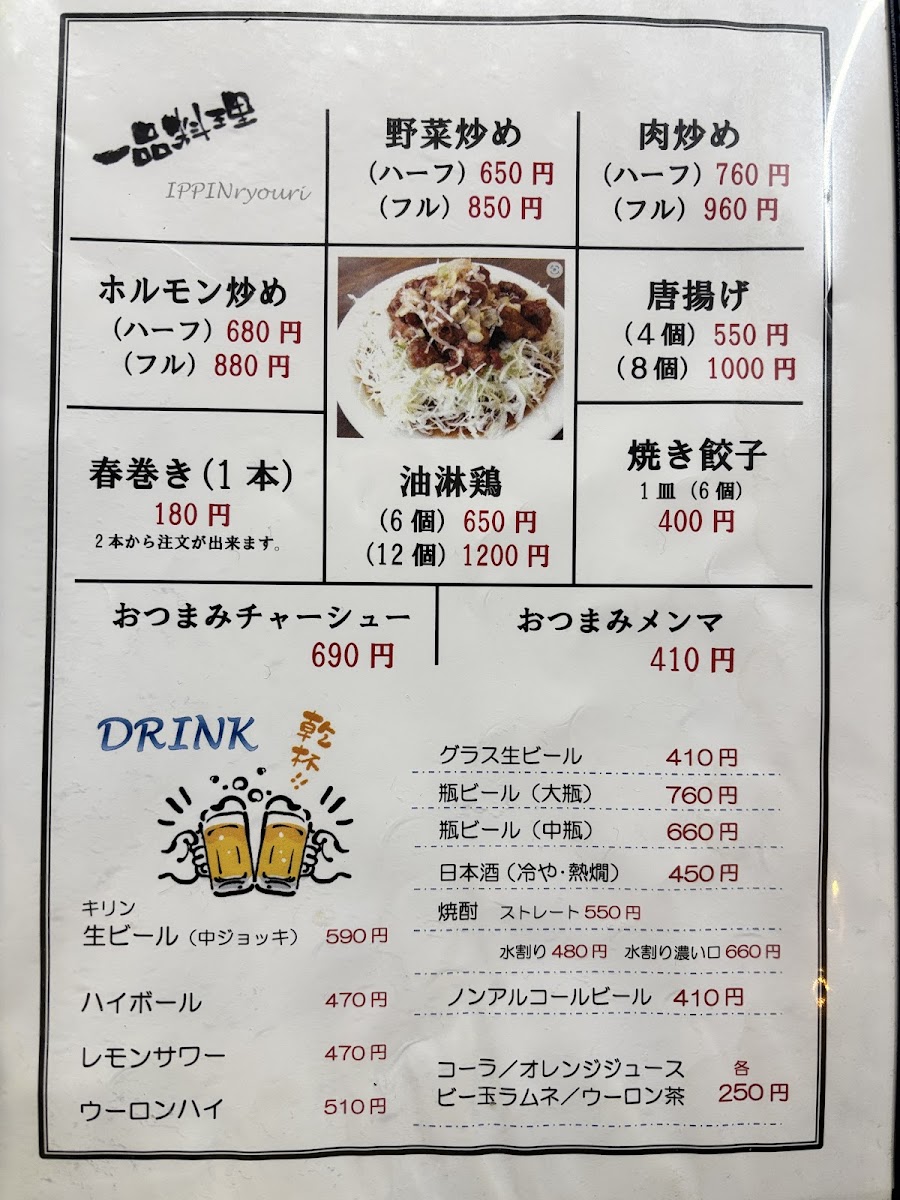 一品料理
IPPINryouri
野菜炒め
(ハーフ) 650 円
(フル) 850 円
肉炒め
(ハーフ) 760 円
(フル) 960 円
ホルモン炒め
(ハーフ) 680 円
(フル) 880 円
唐揚げ
(4個) 550 円
(8個) 1000 円
春巻き(1 本)
180 円
2本から注文が出来ます。
油淋鶏
(6 個) 650 円
(12 個) 1200 円
焼き餃子
1 皿 (6 個)
400 円
おつまみチャーシュー
690 円
おつまみメンマ
410 円
DRINK
乾杯!!
キリン
生ビール(中ジョッキ) 590 円
ハイボール 470 円
レモンサワー 470 円
ウーロンハイ 510 円
グラス生ビール 410 円
瓶ビール(大瓶) 760 円
瓶ビール(中瓶) 660 円
日本酒(冷や・熱燗) 450 円
焼酎 ストレート 550 円
水割り 480 円 水割り濃い口 660 円
ノンアルコールビール 410 円
コーラ/オレンジジュース 各
ビー玉ラムネ/ウーロン茶 250 円